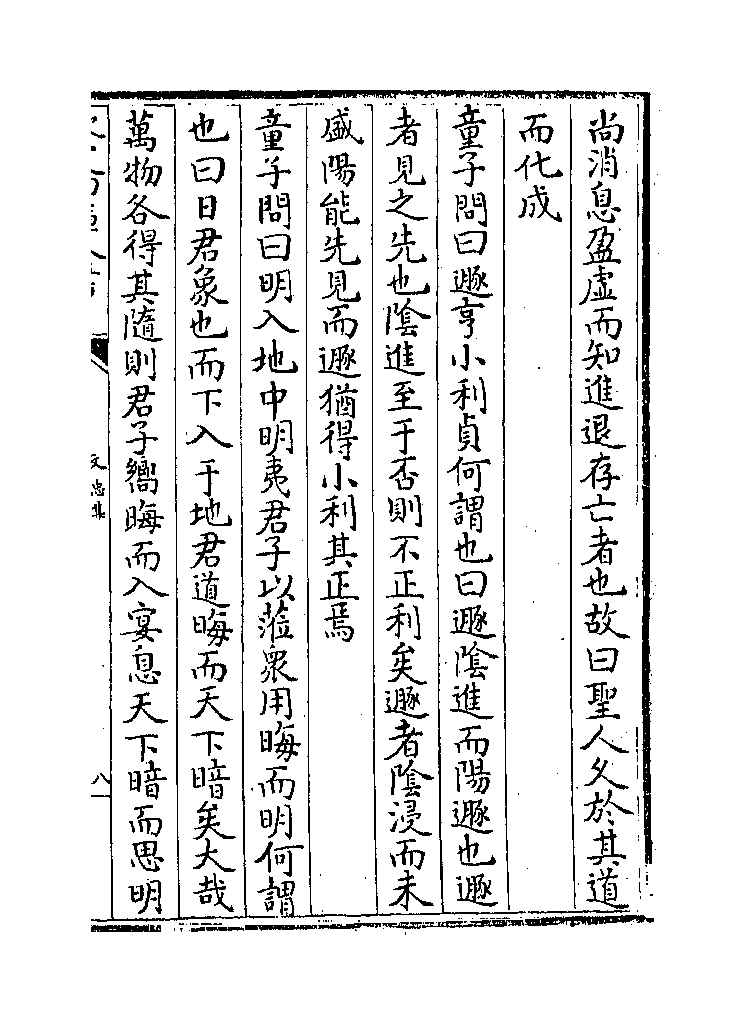 尚消息盈虛而知進退存亡者也故曰聖人久於其道
而化成
童子問曰遯亨小利貞何謂也曰遯隂進而陽遯也遯
者見之先也隂進至于否則不正利矣遯者隂浸而未
盛陽能先見而遯猶得小利其正焉
童子問曰明入地中明夷君子以蒞衆用晦而明何謂
也曰日君象也而下入于地君道晦而天下暗矣大哉
萬物各得其隨則君子嚮晦而入宴息天下暗而思明
文忠集
八